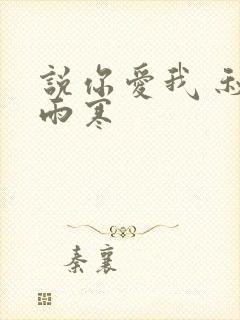 說你愛我
雨寒
秦襄